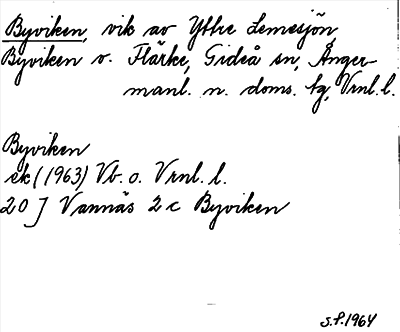 Byviken, vik av Yttre Lemesjön,
Byviken v. Flärke, Gideå sn, Ånger-
manl. n. doms. tg, Vrnl. l.
Byviken
ek (1963) Vb. o. Vrnl. l.
20 J Vännäs 2 c Byviken
S.P. 1964